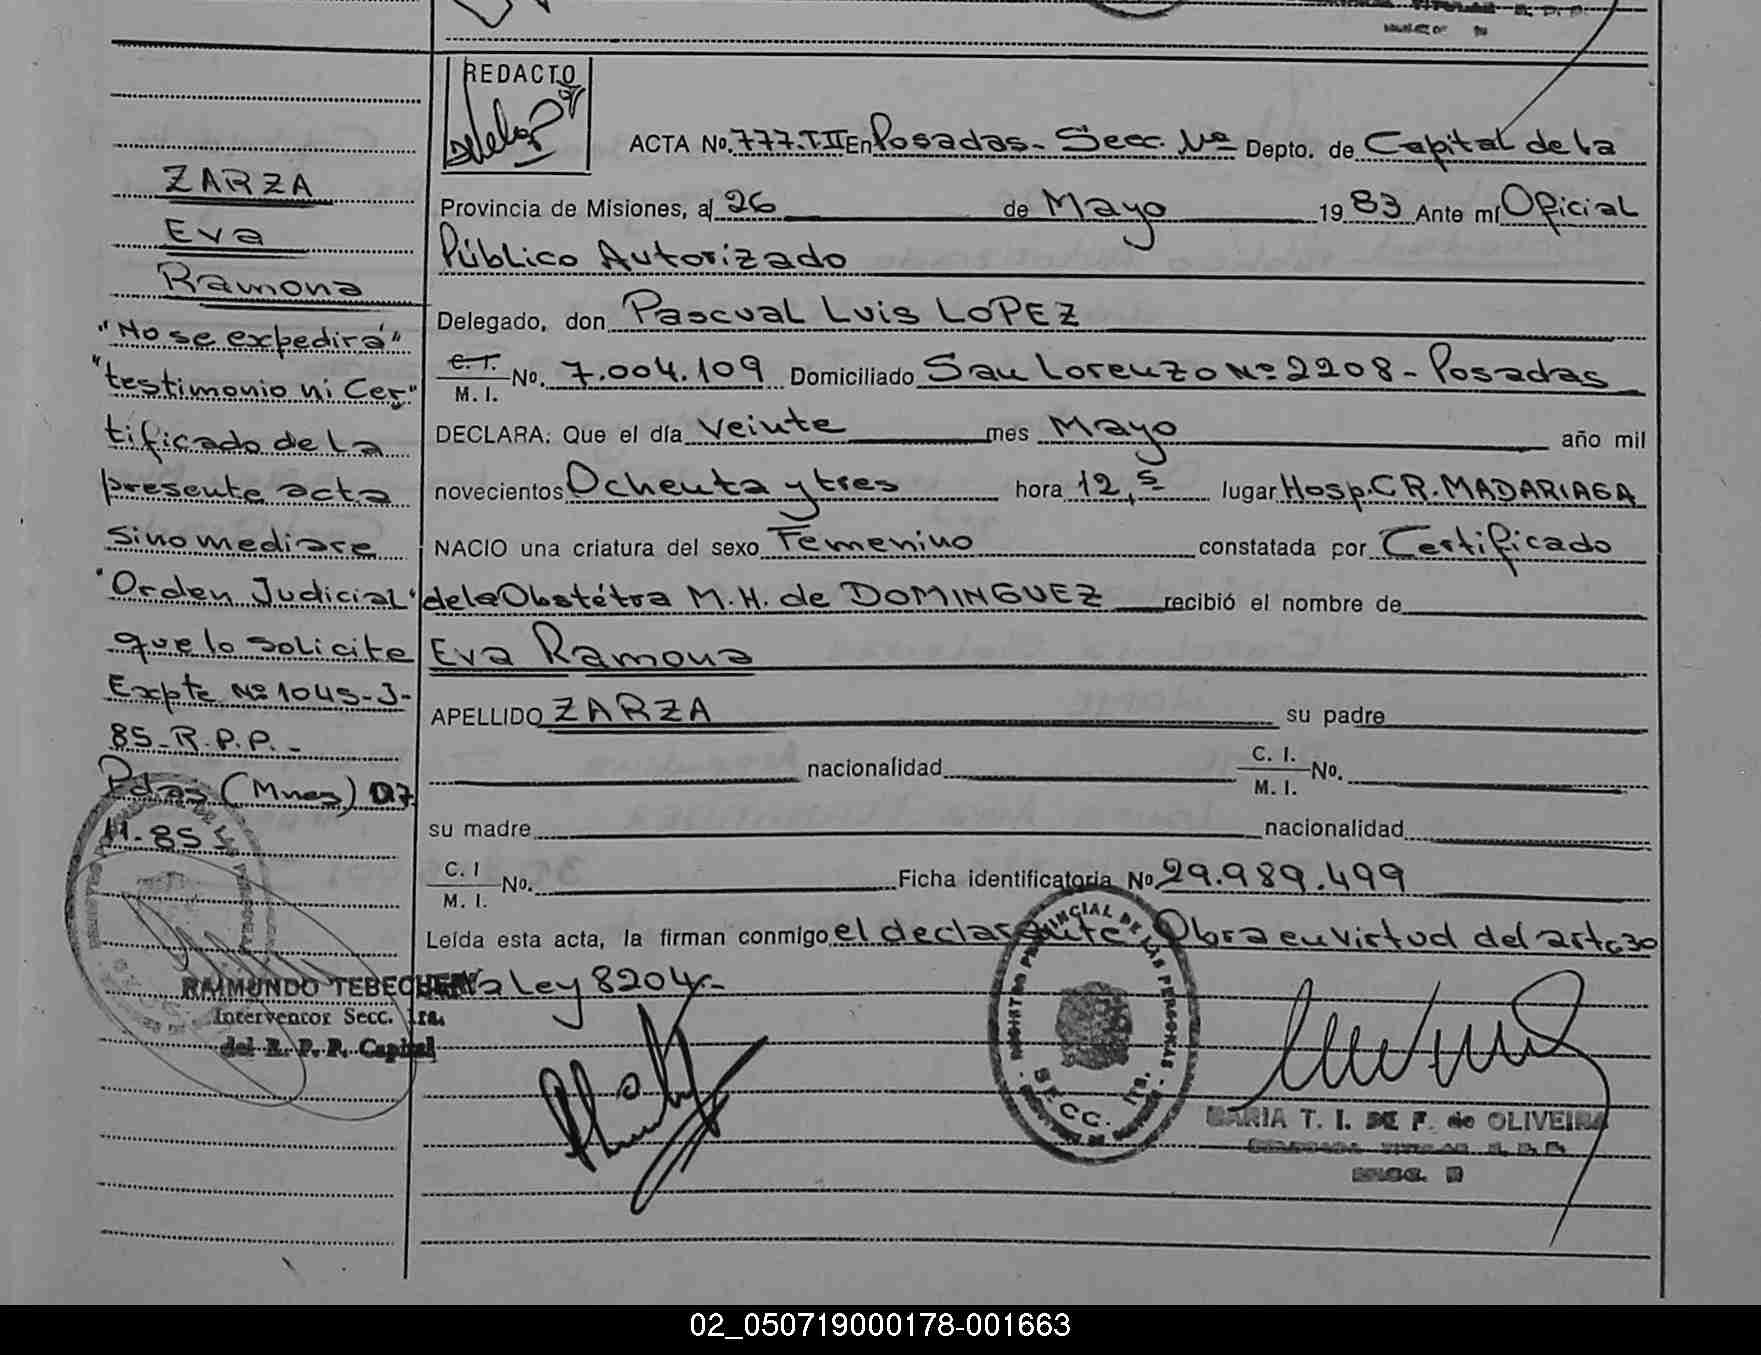 REDACTO
ACTA No. 777.TII En Posadas- Secc. Nº Depto. de Capital de la
Provincia de Misiones, a 26 de Mayo 1983 Ante mí Oficial
Público Autorizado
Delegado, don Pascual Luis LOPEZ
C. I. / M. I. No. 7.004.109 Domiciliado San Lorenzo Nº 2208 - Posadas
DECLARA: Que el día veinte mes Mayo año mil
novecientos Ochenta y tres hora 12,5 lugar Hosp. C R. MADARIAGA
NACIO una criatura del sexo Femenino constatada por Certificado
de la Obstétra M. H. de DOMINGUEZ recibió el nombre de
Eva Ramona
APELLIDO ZARZA su padre
nacionalidad C. I. / M. I. No.
su madre nacionalidad
C. I / M. I. No. Ficha identificatoria No 29.989.499
Leída esta acta, la firman conmigo el declarante. Obra en virtud del art 30
Ley 8204.-
ZARZA
Eva
Ramona
"No se expedirá"
"testimonio ni Cer"
tificado de la
presente acta
sino mediare
"Orden Judicial"
que lo solicite
Expte Nº 1045-J-
85-R.P.P.-
Pdas (Mnes) 07
11-85
RAIMUNDO TEBECHERY
Interventor Secc. 1ra.
del R. P. P. Capital
REGISTRO PROVINCIAL DE LAS PERSONAS
SECC. 1ra.
MARIA T. I. DE F. de OLIVEIRA
02_050719000178-001663